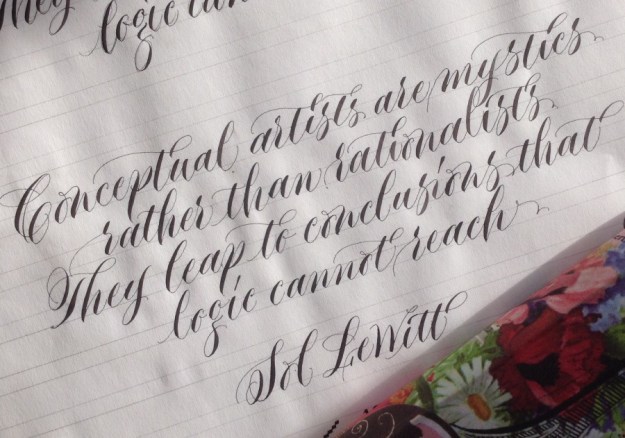 They
logic can
Conceptual artists are mystics
rather than rationalists.
They leap to conclusions that
logic cannot reach
Sol LeWitt